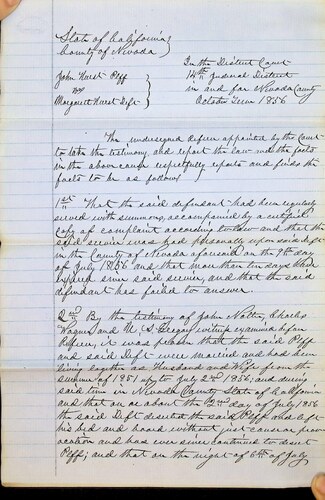 State of California }
County of Nevada }
In the District Court
John Hurst Plff }
14th Judicial District
vs
in and for Nevada County
Margarett Hurst Deft }
October Term 1856
The undersigned Referee appointed by the Court
to take the testimony and report the law and the facts
in the above cause respectfully reports and finds the
facts to be as follows
1st That the said defendant had been regularly
served with summons, accompanied by a certified
copy of complaint according to law and that the
said service was had personally upon said deft
in the County of Nevada aforesaid on the 9th day
of July 1856 and that more than ten days have
elapsed since said service, and that the said
defendant has failed to answer.
2nd By the testimony of John Charles
Wagner and N. S. Gregory witness examined before
Referee, it was proven that the said Plff
and said Deft were married and had been
living together as Husband and Wife from the
summer of 1851 up to July 2nd 1856, and during
said time in Nevada County State of California
and that on or about the 2nd day of July 1856
the said Deft deserted the said Plff & left
his bed and board without just cause or prov-
ocation and has ever since continued to desert
Plff; and that on the night of 6th of July